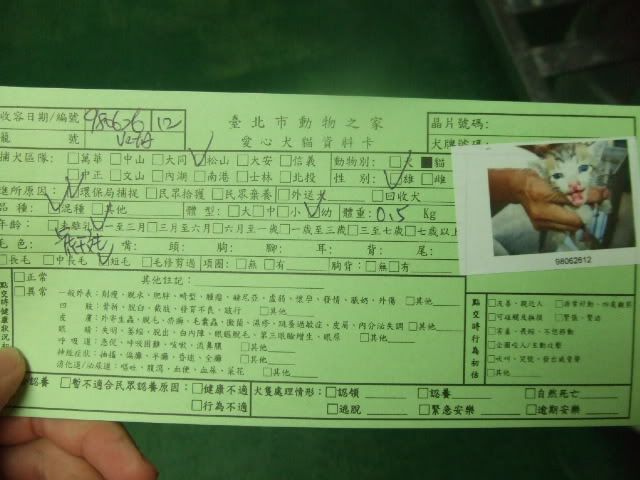 收容日期/編號 980626 12 臺北市動物之家 晶片號碼:
籠 號 愛心犬貓資料卡 犬牌號碼:
捕犬區隊: □萬華 □中山 □大同 ☑松山 □大安 □信義 動物別: □犬 ■貓
□中正 □文山 □內湖 □南港 □士林 □北投 性 別: ☑雄 □雌
進所原因: ☑環保局捕捉 □民眾拾獲 □民眾棄養 □外送 □回收犬
品種: ☑混種 □其他 體型: □大 □中 □小 ☑幼 體重: 0.5 Kg
年齡: □未離乳 □一至三月 □三月至六月 □六月至一歲 □一歲至三歲 □三至七歲 □七歲以上
毛色: 嘴: 頭: 胸: 腳: 耳: 背: 尾:
□長毛 □中長毛 ☑短毛 □毛修剪過 項圈: □無 □有 胸背: □無 □有
98062612
□正常 其他註記:
□異常 一般外表: 削瘦、脫水、肥胖、畸型、腫瘤、赫尼亞、虛弱、懷孕、發情、脹奶、外傷 □其他
四 肢: 骨折、脫臼、截肢、發育不良、跛行 □其他
皮 膚: 外寄生蟲、脫毛、疥癬、毛囊蟲、黴菌、濕疹、跳蚤過敏症、皮屑、內分泌失調 □其他
眼 睛: 失明、萎縮、脫出、白內障、眼瞼內翻、第三眼瞼增生、眼屎 □其他
呼吸道: 急促、呼吸困難、咳嗽、流鼻膿 □其他
神經症狀: 抽搐、偏癱、半癱、昏迷、全癱 □其他
消化道/泌尿道: 嘔吐、腹瀉、血便、血尿、菜花 □其他
點交時健康狀況初
點交時行為初估
□友善、親近人
□可碰觸及撫摸 □緊張、緊迫
□害羞、畏縮、不想移動
□企圖咬人/主動攻擊
□吠叫、哭號、發出威脅聲
□其他
認養 □暫不適合民眾認養原因: □健康不適 犬隻處理情形: □認領 □認養 □自然死亡
□行為不適 □逃脫 □緊急安樂 □逾期安樂